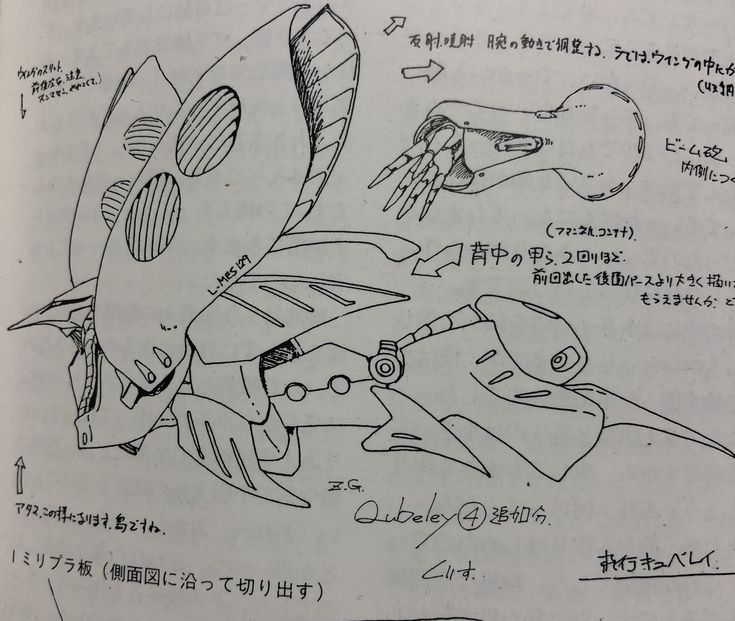 反射.噴射 腕の動きで調整する. ラでは.ウイングの中にか
ウィングのスリット
ビーム砲
内側につく
(ファンネル.コンテナ).
背中の甲ら、2回りほど.
前回出した後面パースより大きく描い
もらえませんか. ど
L-MES129
アタマ.この様になります.鳥ですね.
Z.G.
Qubeley ④ 追加分.
飛行キュベレイ.
1ミリプラ板(側面図に沿って切り出す)